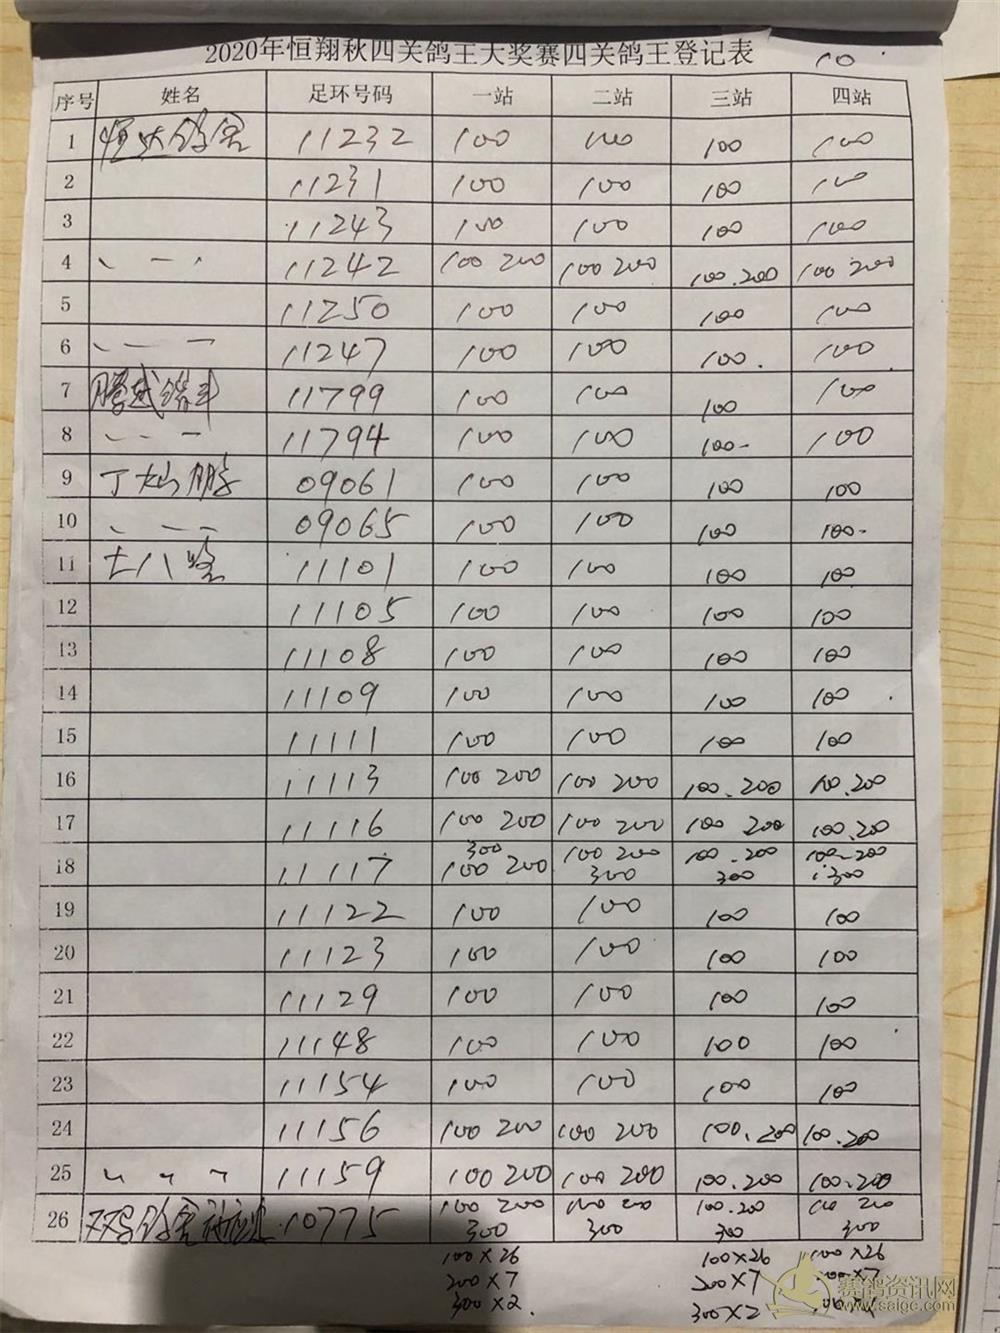 2020年恒翔秋四关鸽王大奖赛四关鸽王登记表 10
序号 姓名 足环号码 一站 二站 三站 四站
1 恒达鸽舍 11232 100 100 100 100
2 11231 100 100 100 100
3 11243 100 100 100 100
4 、 一 、 11242 100 200 100 200 100.200 100 200
5 11250 100 100 100 100
6 、 一 一 11247 100 100 100. 100
7 11799 100 100 100 100
8 、 、 一 11794 100 100 100- 100
9 丁灿鹏 09061 100 100 100 100
10 、 一 一 09065 100 100 100 100-
11 11101 100 100 100 100
12 11105 100 100 100 100
13 11108 100 100 100 100
14 11109 100 100 100 100
15 11111 100 100 100 100
16 11113 100 200 100 200 100.200 100.200
17 11116 100 200 100 200 100 200 100.200
18 11117 300 100 200 100 200 300 100.200 300 100-200 300
19 11122 100 100 100 100
20 11123 100 100 100 100
21 11129 100 100 100 100
22 11148 100 100 100 100
23 11154 100 100 100 100
24 11156 100 200 100 200 100.200 100.200
25 、 、 、 11159 100 200 100 200 100.200 100.200
26 10775 100 200 300 100 200 300 100.200 300 100 200 300
100×26 100×26 100×26
200×7 200×7 200×7
300×2. 300×2
赛鸽资讯网
www.saige.com